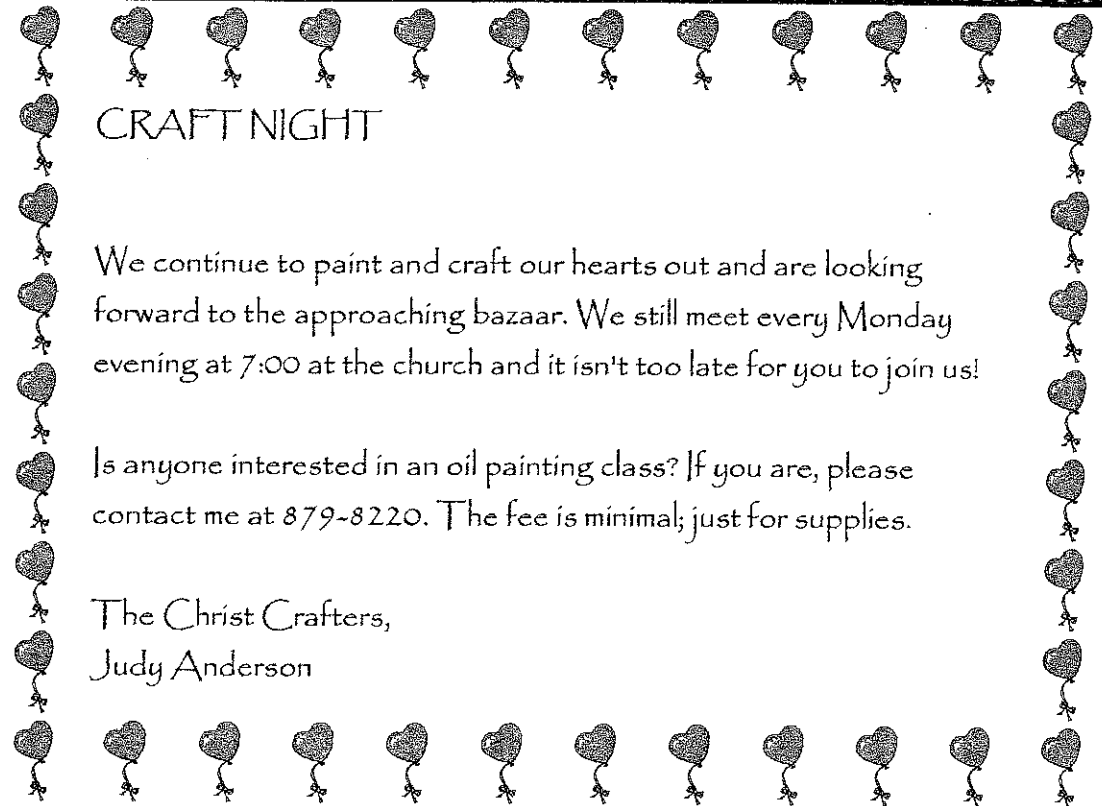 CRAFT NIGHT
We continue to paint and craft our hearts out and are looking
forward to the approaching bazaar. We still meet every Monday
evening at 7:00 at the church and it isn't too late for you to join us!
Is anyone interested in an oil painting class? If you are, please
contact me at 879-8220. The fee is minimal; just for supplies.
The Christ Crafters,
Judy Anderson